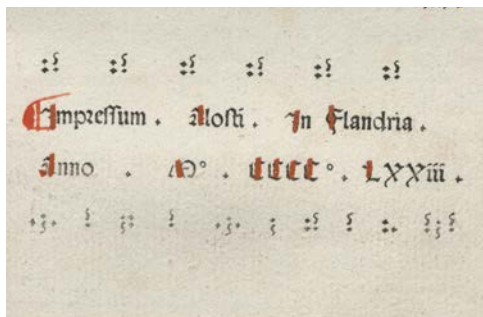 ¶ Impressum . Alosti . In Flandria .
Anno . M° . CCCC° . LXXiii .